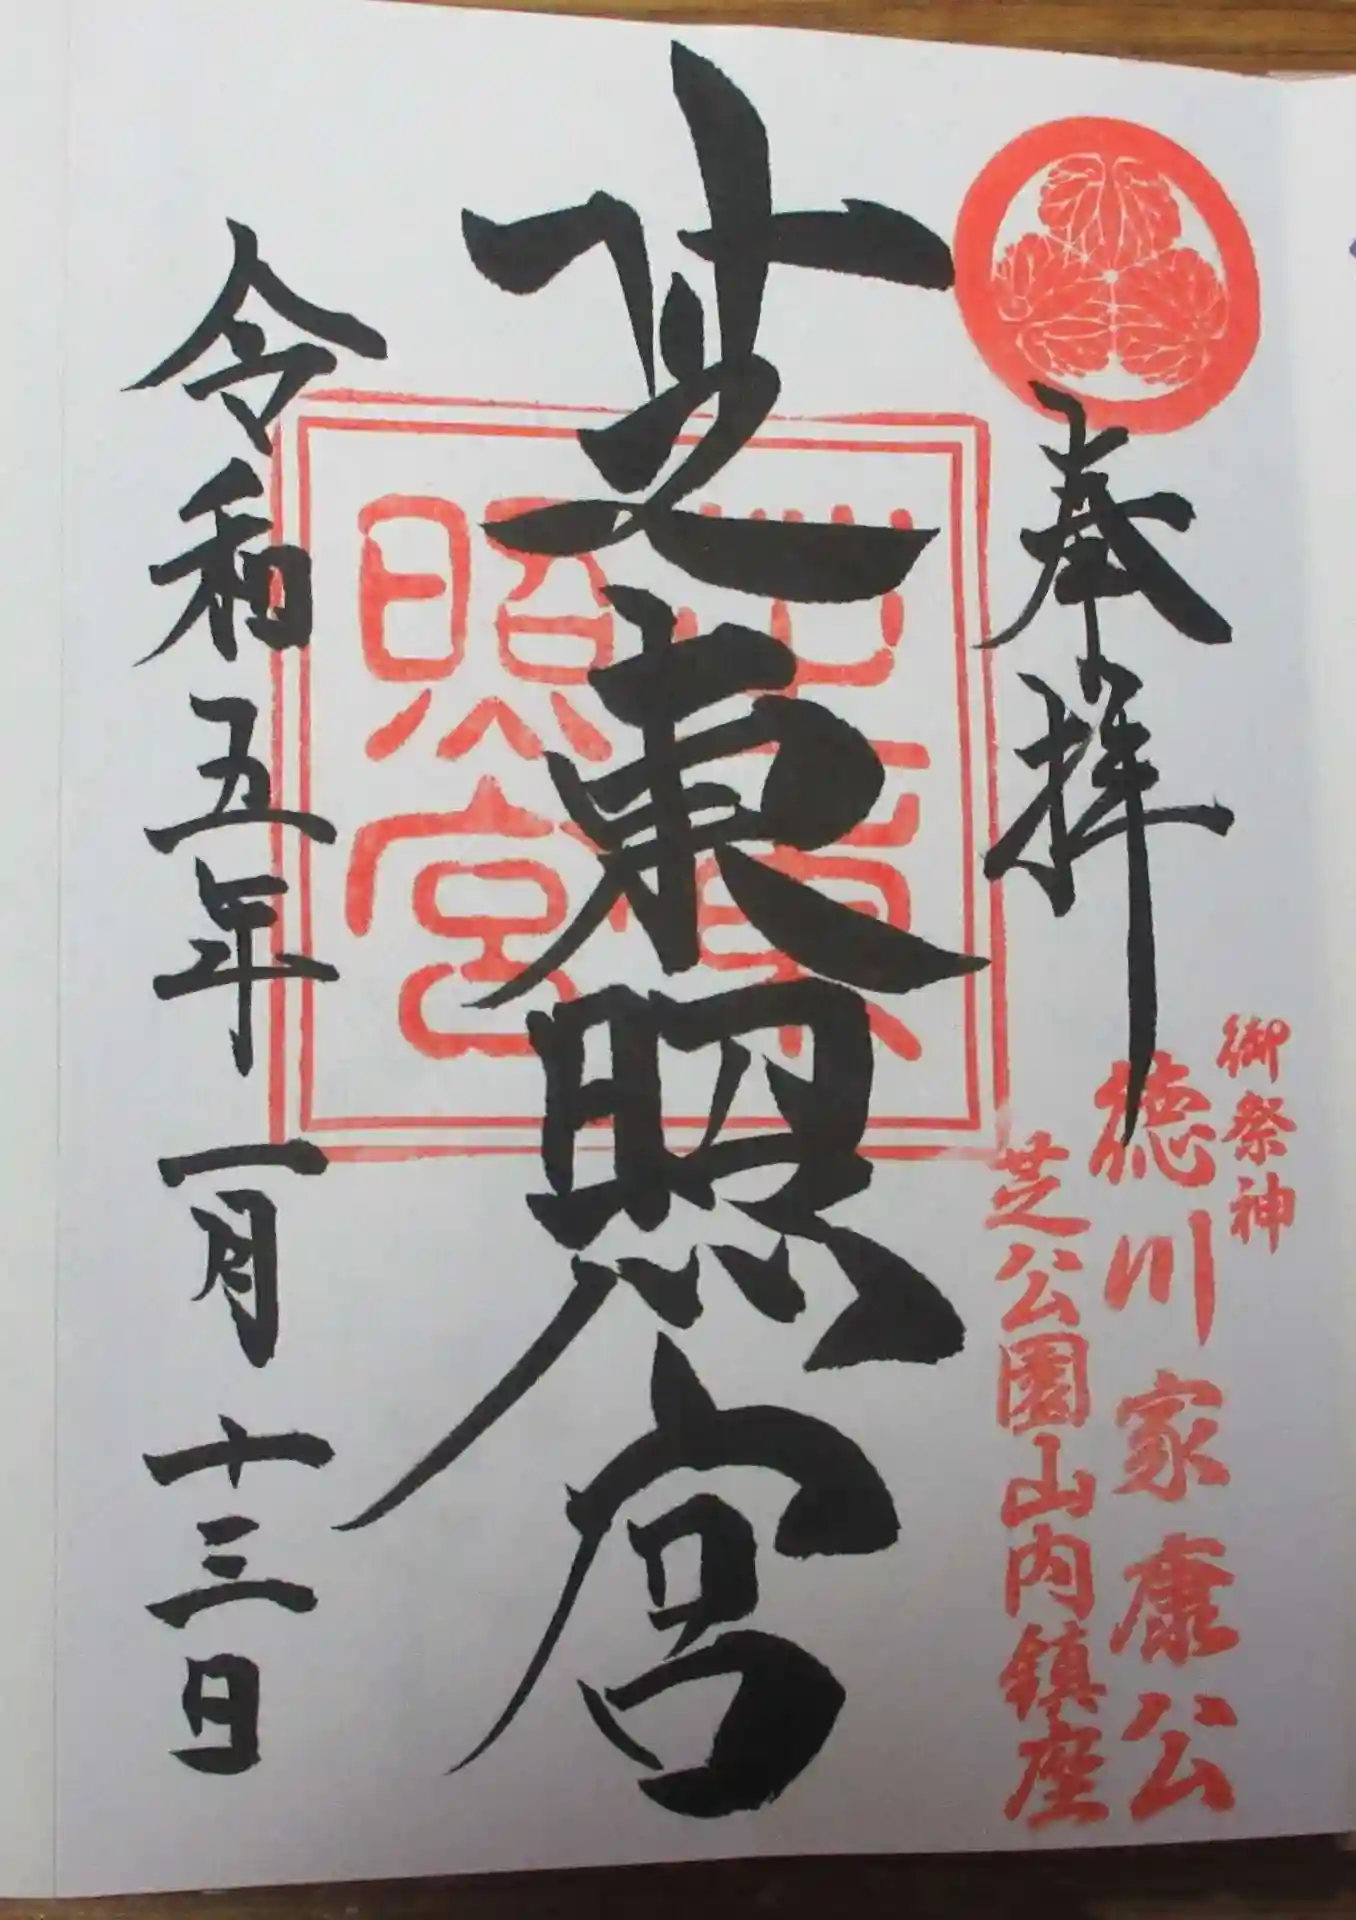 奉拝
御祭神
徳川家康公
芝公園山内鎮座
芝東照宮
芝東照宮
令和五年一月十三日